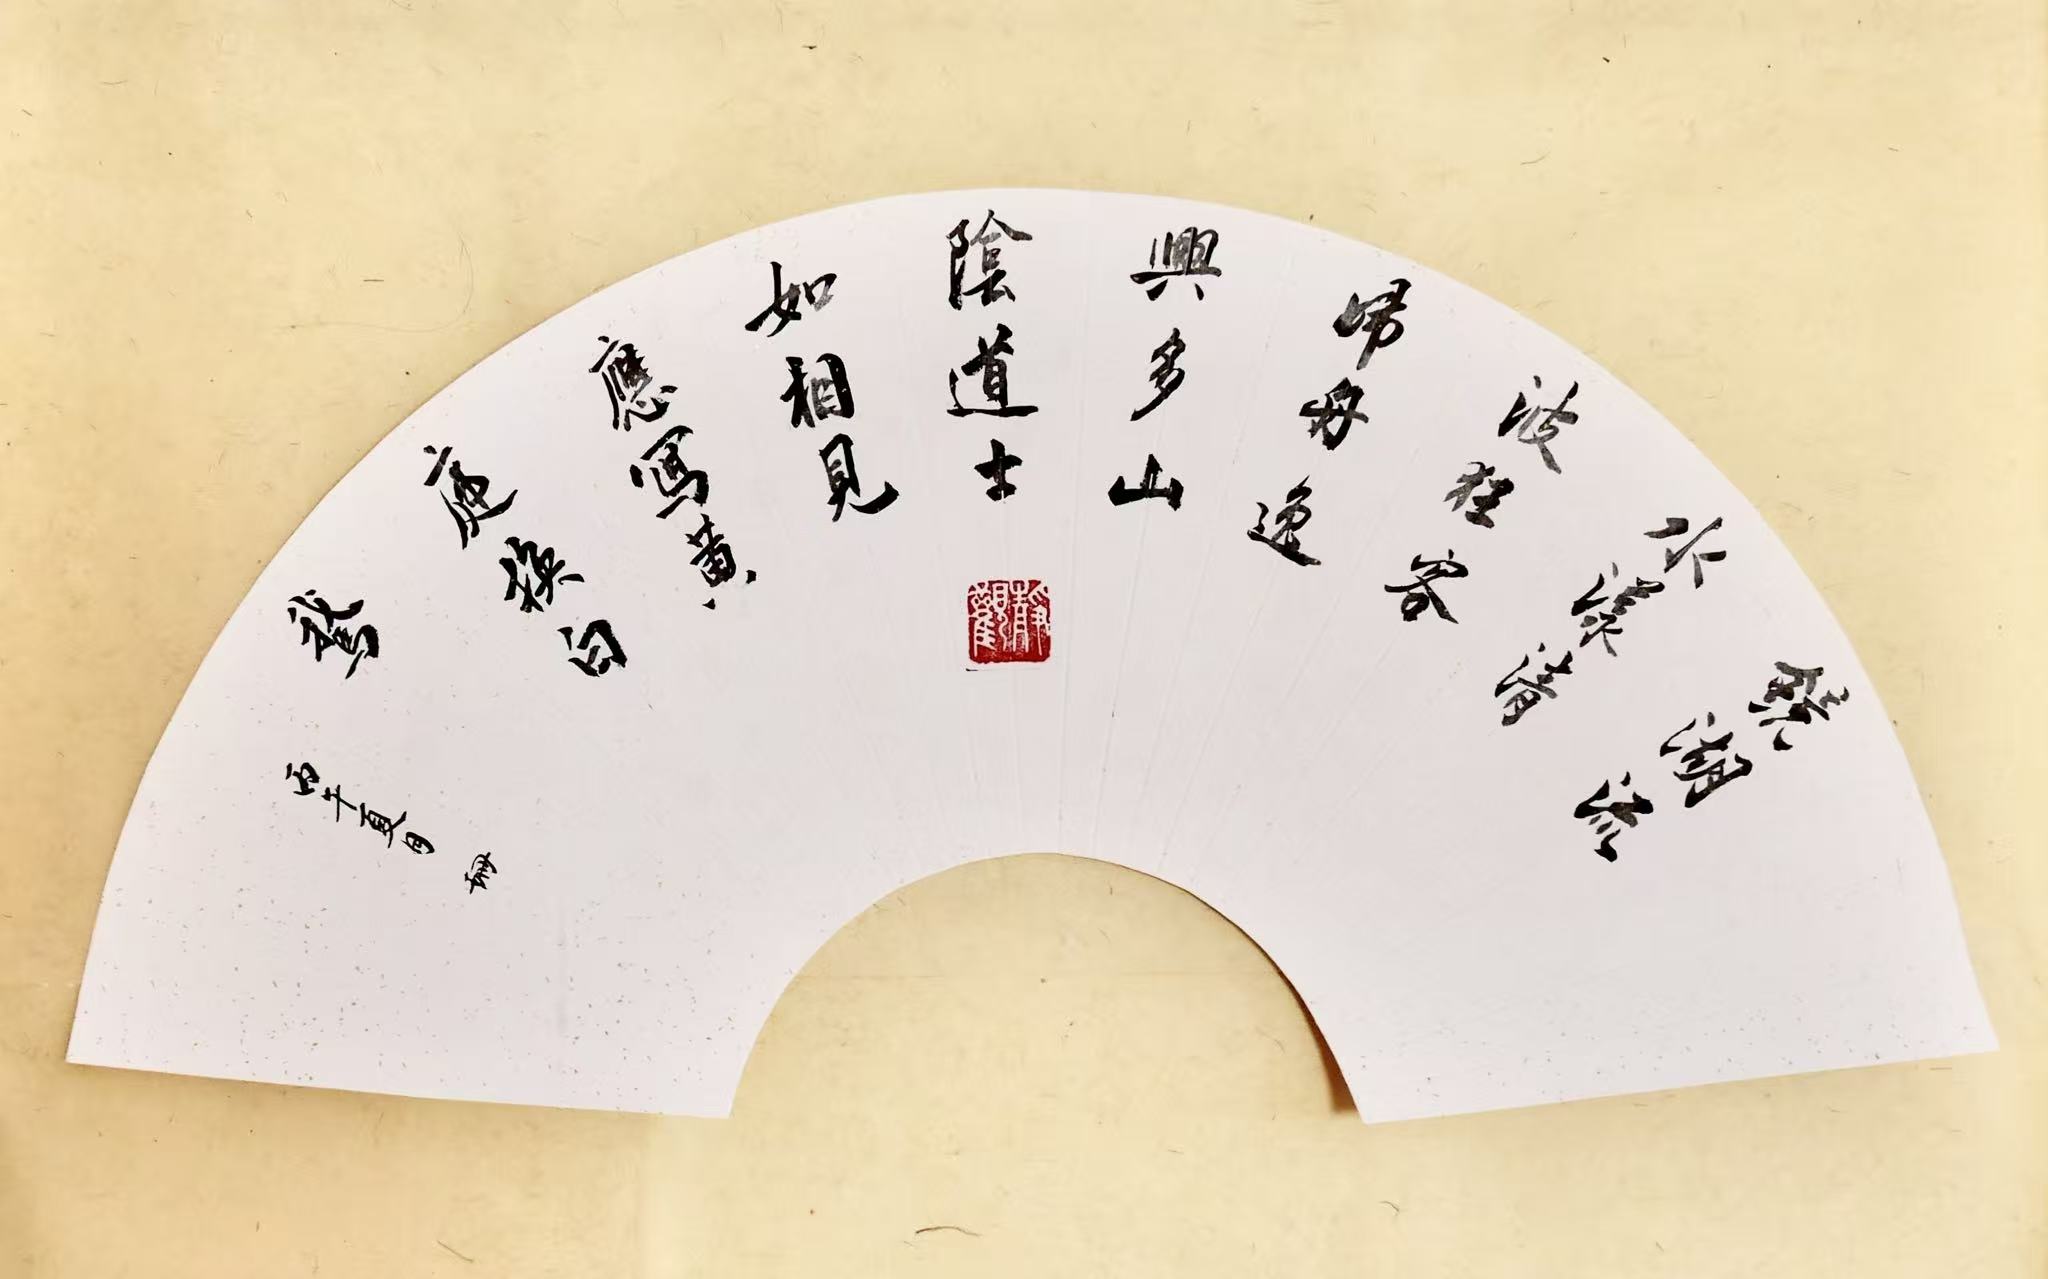 鏡湖流
水漾清
波狂客
歸舟逸
興多山
陰道士
如相見
應寫黃
庭換白
鵝
丙午夏月
靜觀